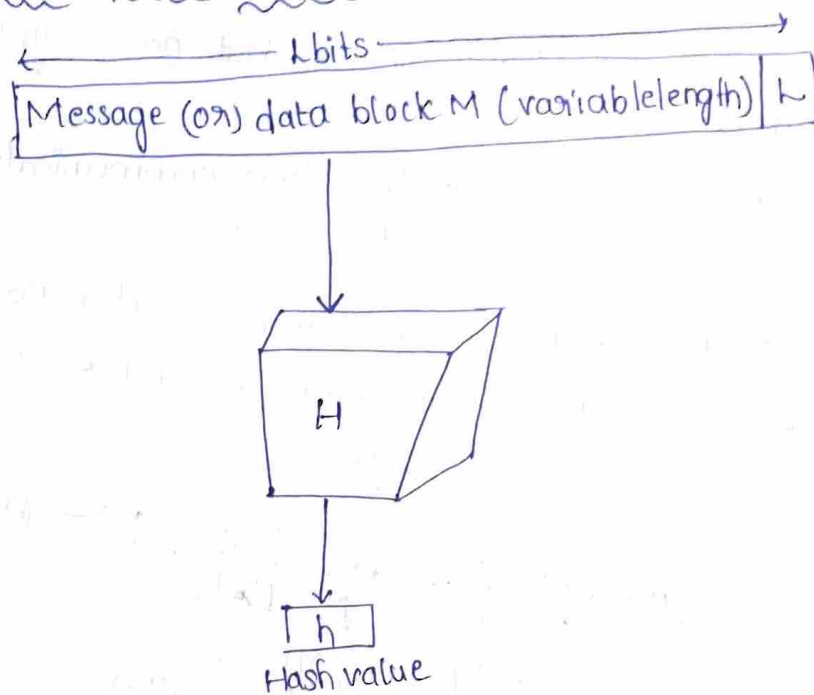 L bits
Message (or) data block M (variable length) L
H
h
Hash value